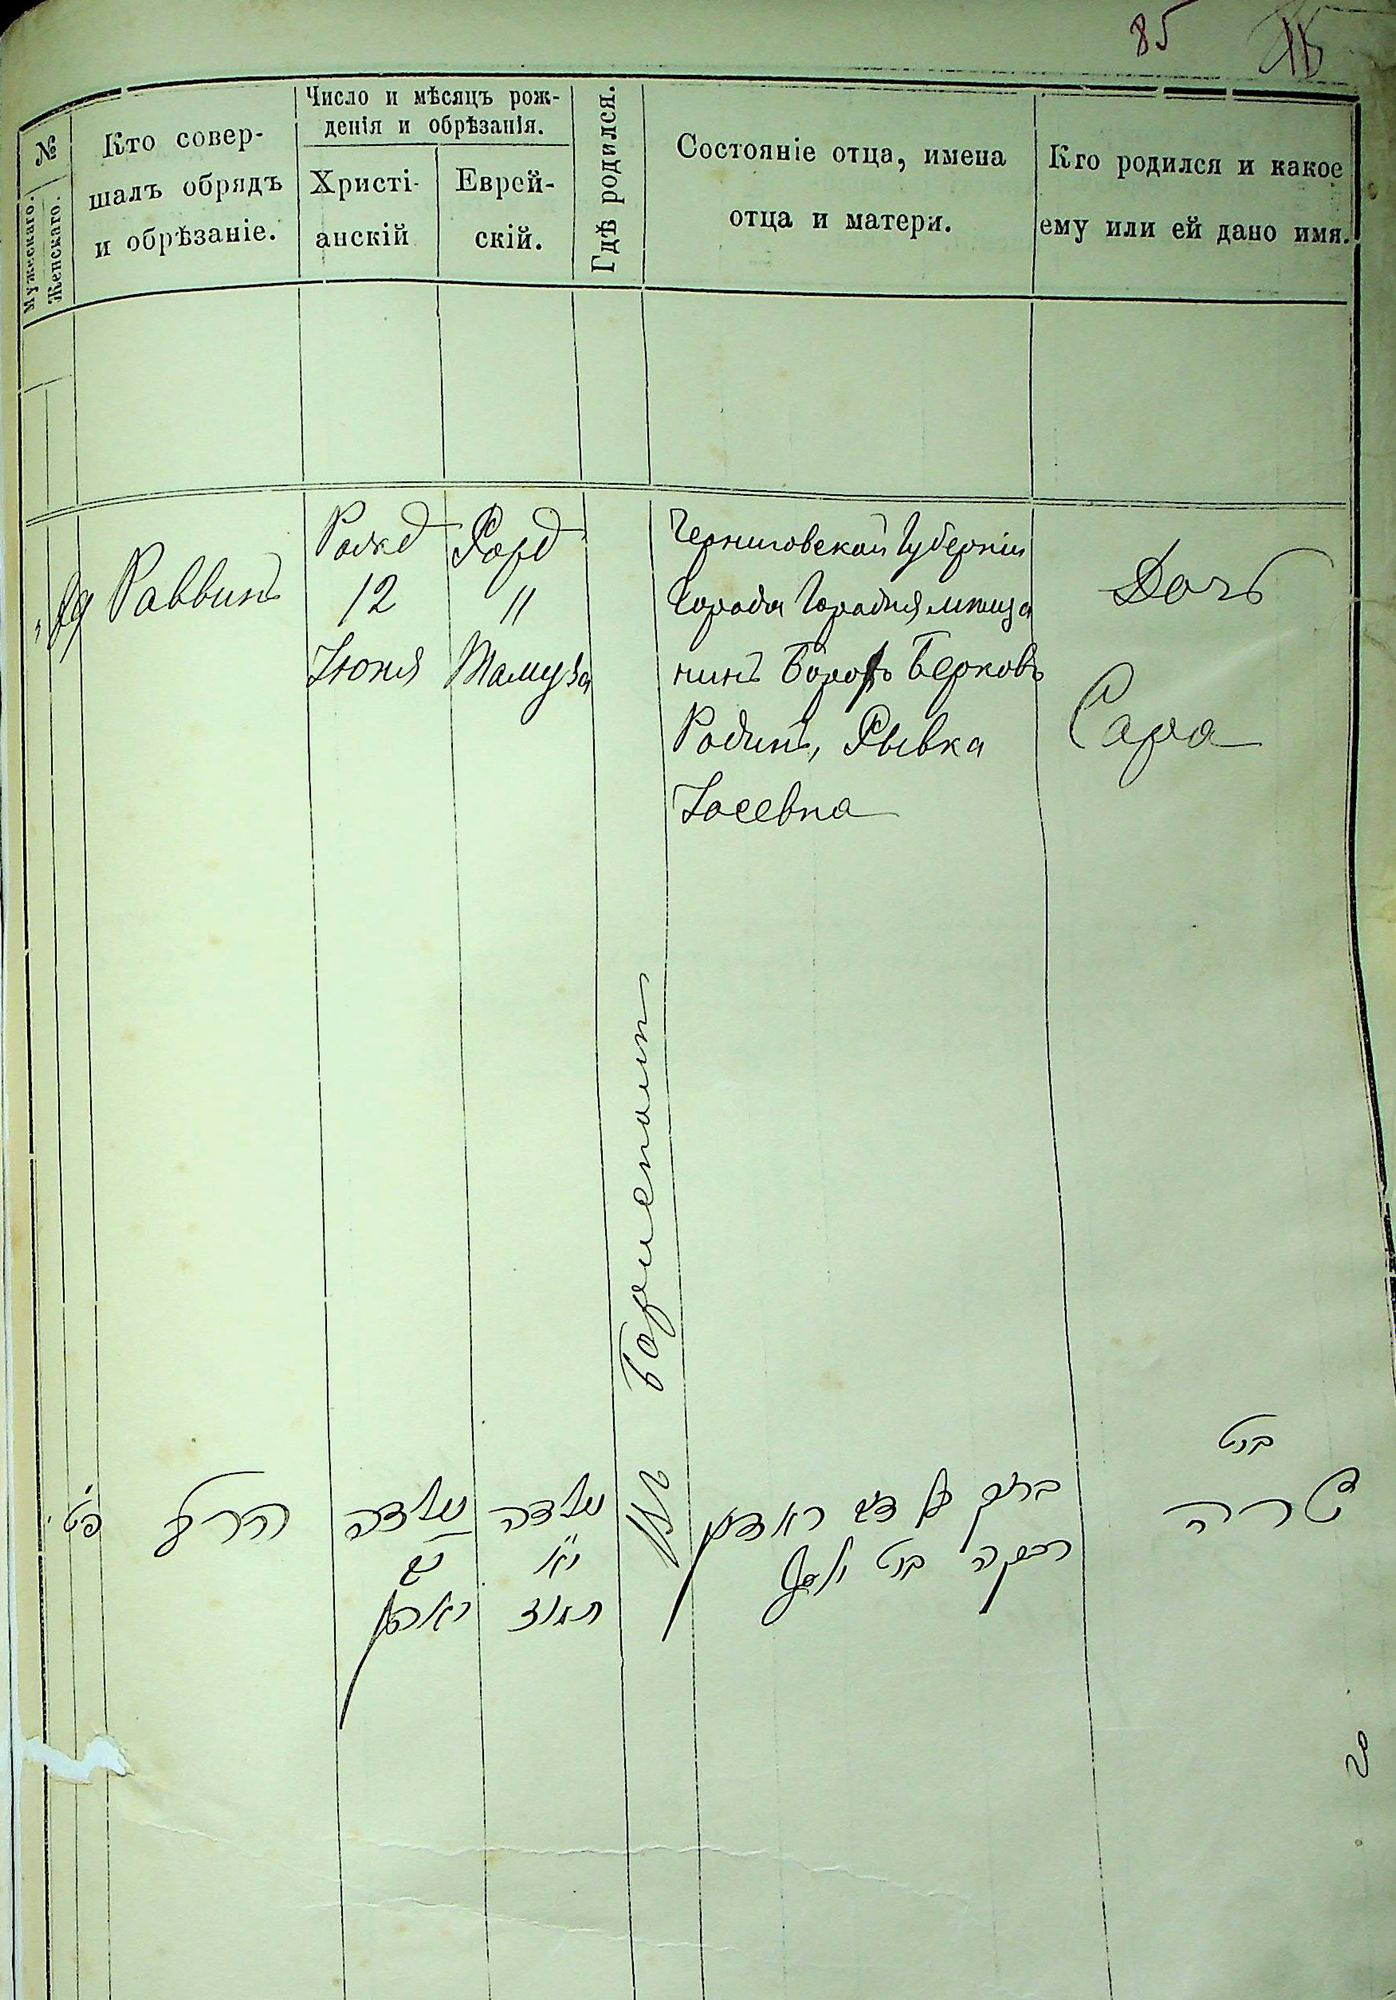 85
№
Мужескаго.
Женскаго.
Кто совер-
шалъ обрядъ
и обрѣзаніе.
Число и мѣсяцъ рож-
денія и обрѣзанія.
Христі-
анскій
Еврей-
скій.
Гдѣ родился.
Состояніе отца, имена
отца и матери.
Кто родился и какое
ему или ей дано имя.
89
Раввинъ
Рожд
12
Іюня
Рожд
11
Тамуза
Черниговской Губерніи
Города Городня мѣща
нинъ Борохъ Берковъ
Родинъ, Рывка
Іосевна
Дочь
Сара
Въ Борисполѣ
פט
הרב
נולדה
יב
יאוהן
נולדה
יא
תמוז
ברוך בן דוב ראדין
רבקה בת יוסף
בת
שרה